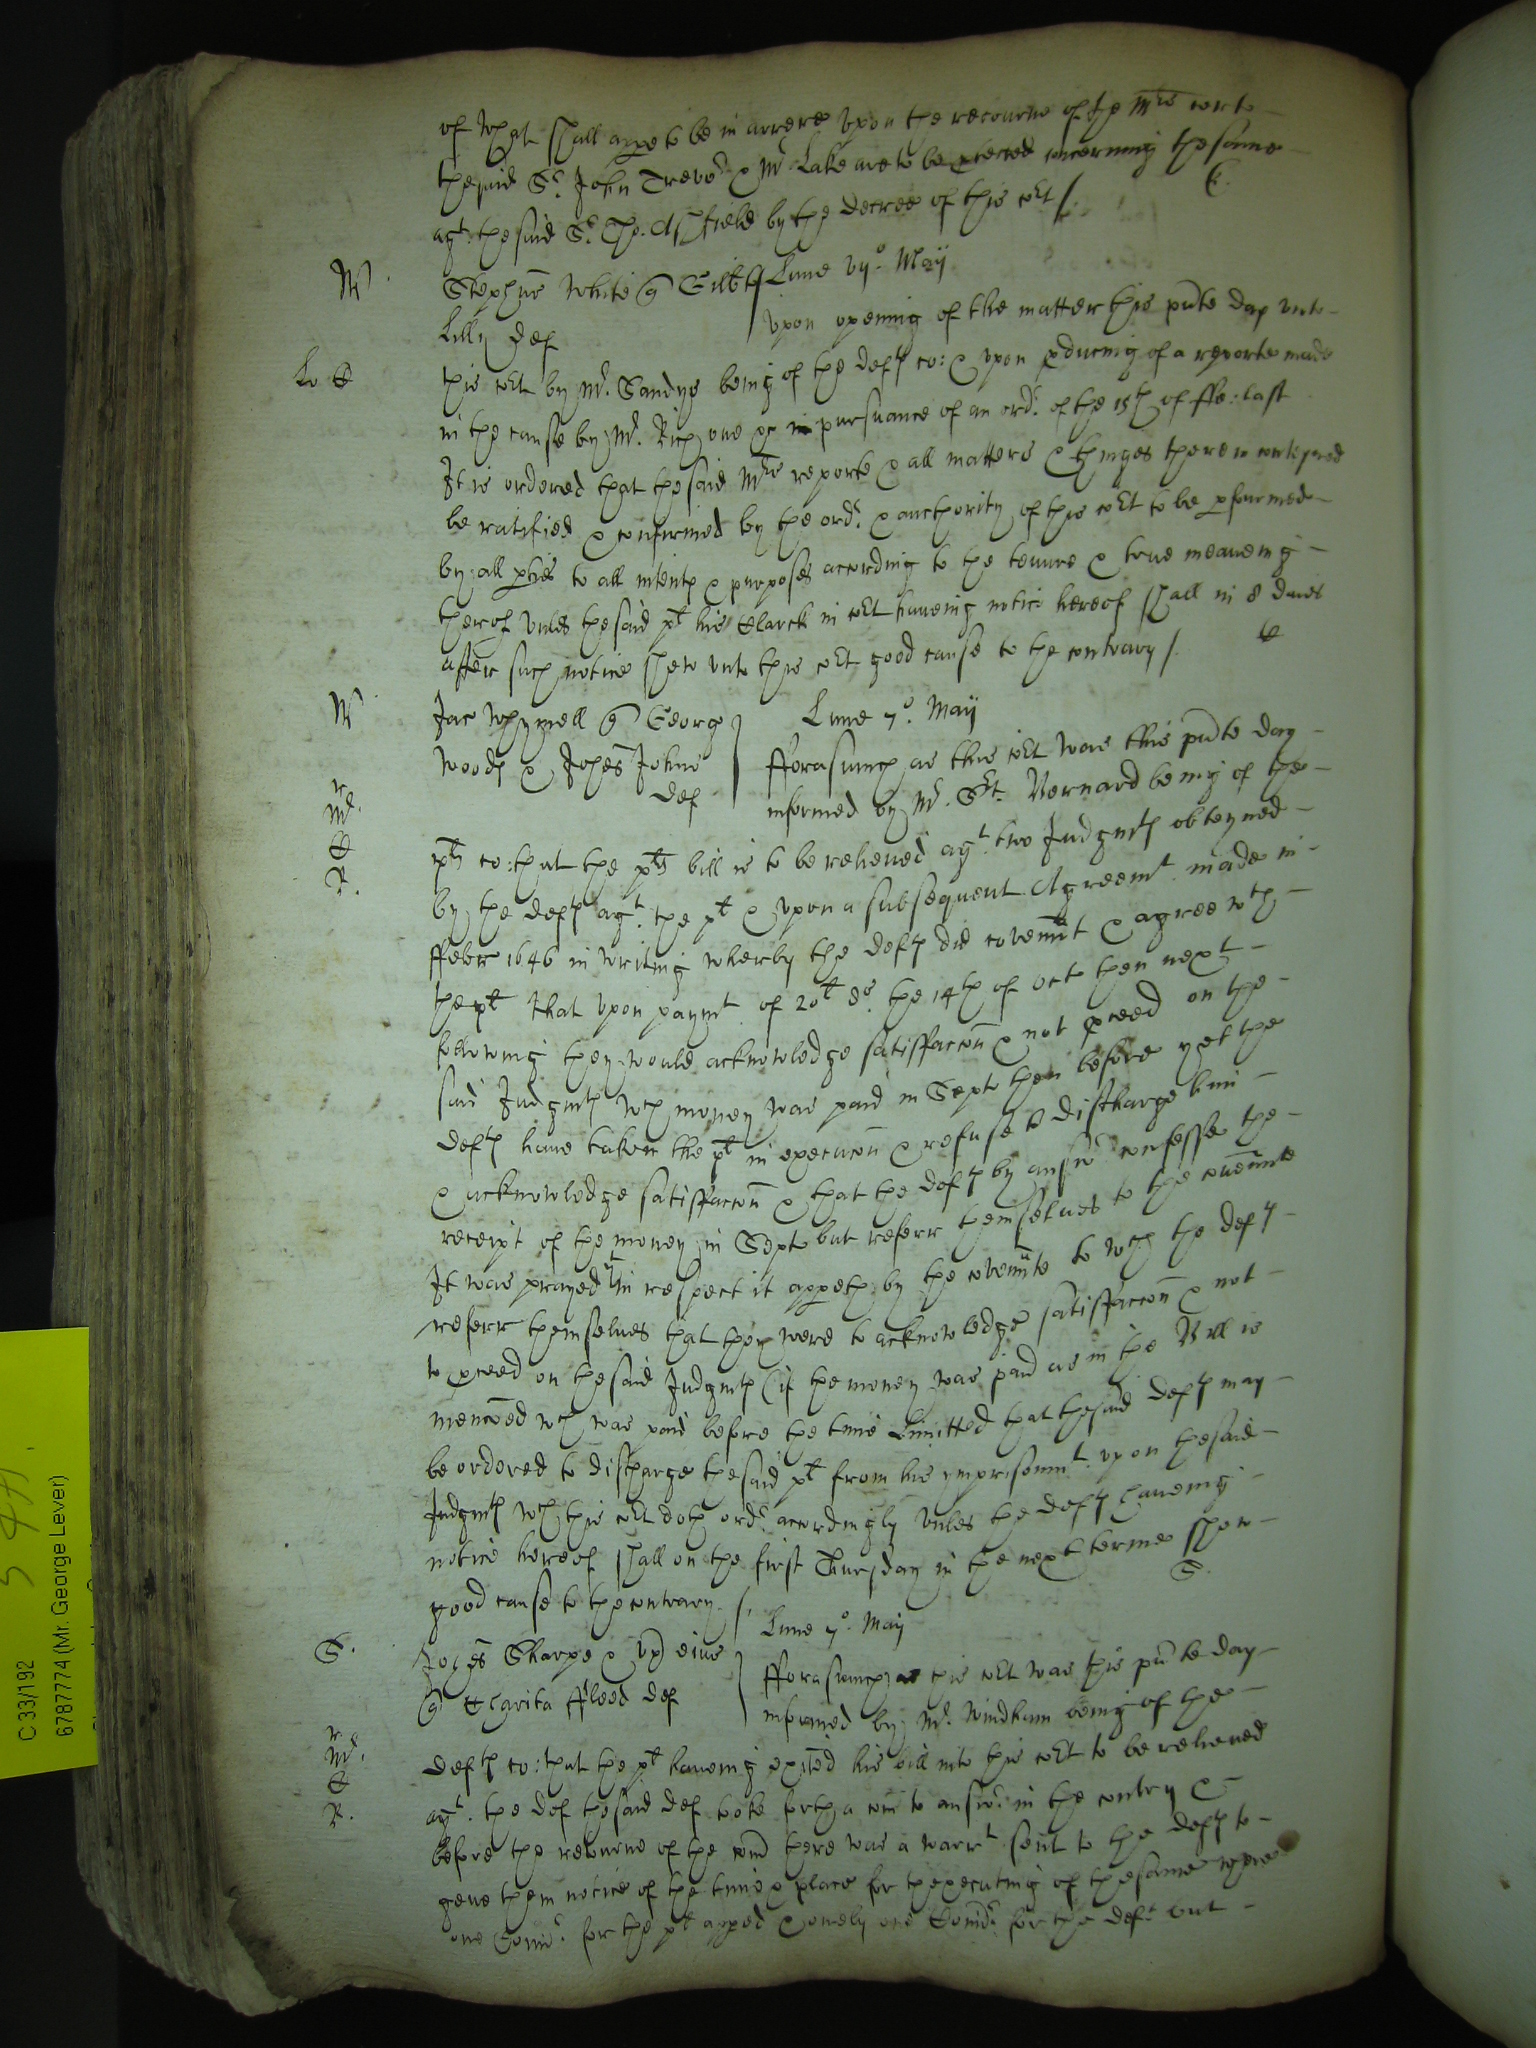 of what shall appe to be in arrere vpon the retourne of the Mrs certe
the said Sr. John Trevor & Mr Lake are to be concerning the same
agt. the said Sr. Tho. Ashfield by the decree of this Cort /.
W
Stephus White q Gilbt Lune vijo. Maij
Lilly Def
Vpon opening of the matter this pnte day vnto
this Cort by Mr. Sandys being of the Defts co: & vpon pducing of a reporte made
in the cause by Mr. Rich one &c in pursuance of an ordr. of the 15th of ffe: last
It is ordered that the said Mrs reporte & all matters & thinges therein conteyned
be ratified & confirmed by the ordr. & aucthority of this Cort to be pformed
by all pties to all intents & purposes according to the tenure & true meaneing
therof vnles the said plt his Clarck in Cort haueing notice hereof shall in 8 daies
after such notice shew vnto this Cort good cause to the contrary /.
W
Jac Whymell q Georg
Lune 7o. Maij
Woods & Johes Johns
Def
fforasmuch as this Cort was this pnte day
informed by Mr. Srt. Bernard being of the
plts co: that the plts bill is to be releived agt. two Judgmts obteyned
by the Defts agt. the plt & vpon a subsequent Agreemt. made in
ffebr 1646 in writing wherby the Defts did covennt & agree wth
the plt that vpon paymt. of 20l &c. the 14th of Octo then next
following they would acknowledge satisfaccon & not pceed on the
said Judgmts wch money was paid in Septo then before yet the
Defts haue taken the plt in execucon & refuse to discharge him
& acknowledge satisfaccon & that the Defts by answr. confesse the
receipt of the money in Septo but referr themselues to the couennte
It was prayed yt in respect it appeth by the covennte to wch the Defts
referr themselues that they were to acknowledge satisfaccon & not
to pceed on the said Judgmts (if the money was paid as in the Bill is
menconed wch was paid before the time limitted that the said Defts may
be ordered to discharge the said plt from his imprisonmt. vpon the said
Judgmts wch this Cort doth ordr. accordingly vnles the Defts haueing
notice hereof shall on the first Thursday in the next terme shew
good cause to the contrary /.
S.
S.
Lune 7o. May
Johes Sharpe & vx eius
q Charita fflood Def
fforasmuch as this Cort was this pnte day
informed by Mr. Windham being of the
Mr.
C
R.
Defts co: that the plt haueing exited his bill into this Cort to be releived
agt. the Def the said Def tooke forth a com to answr. in the contry &
before the retourne of the com there was a warrt sent to the Defts to
geve them notice of the time & place for thexecuting of the same where
one Comr. for the plt apped & onely one Comr. for the Deft but
C 33/192
6787774 (Mr. George Lever)